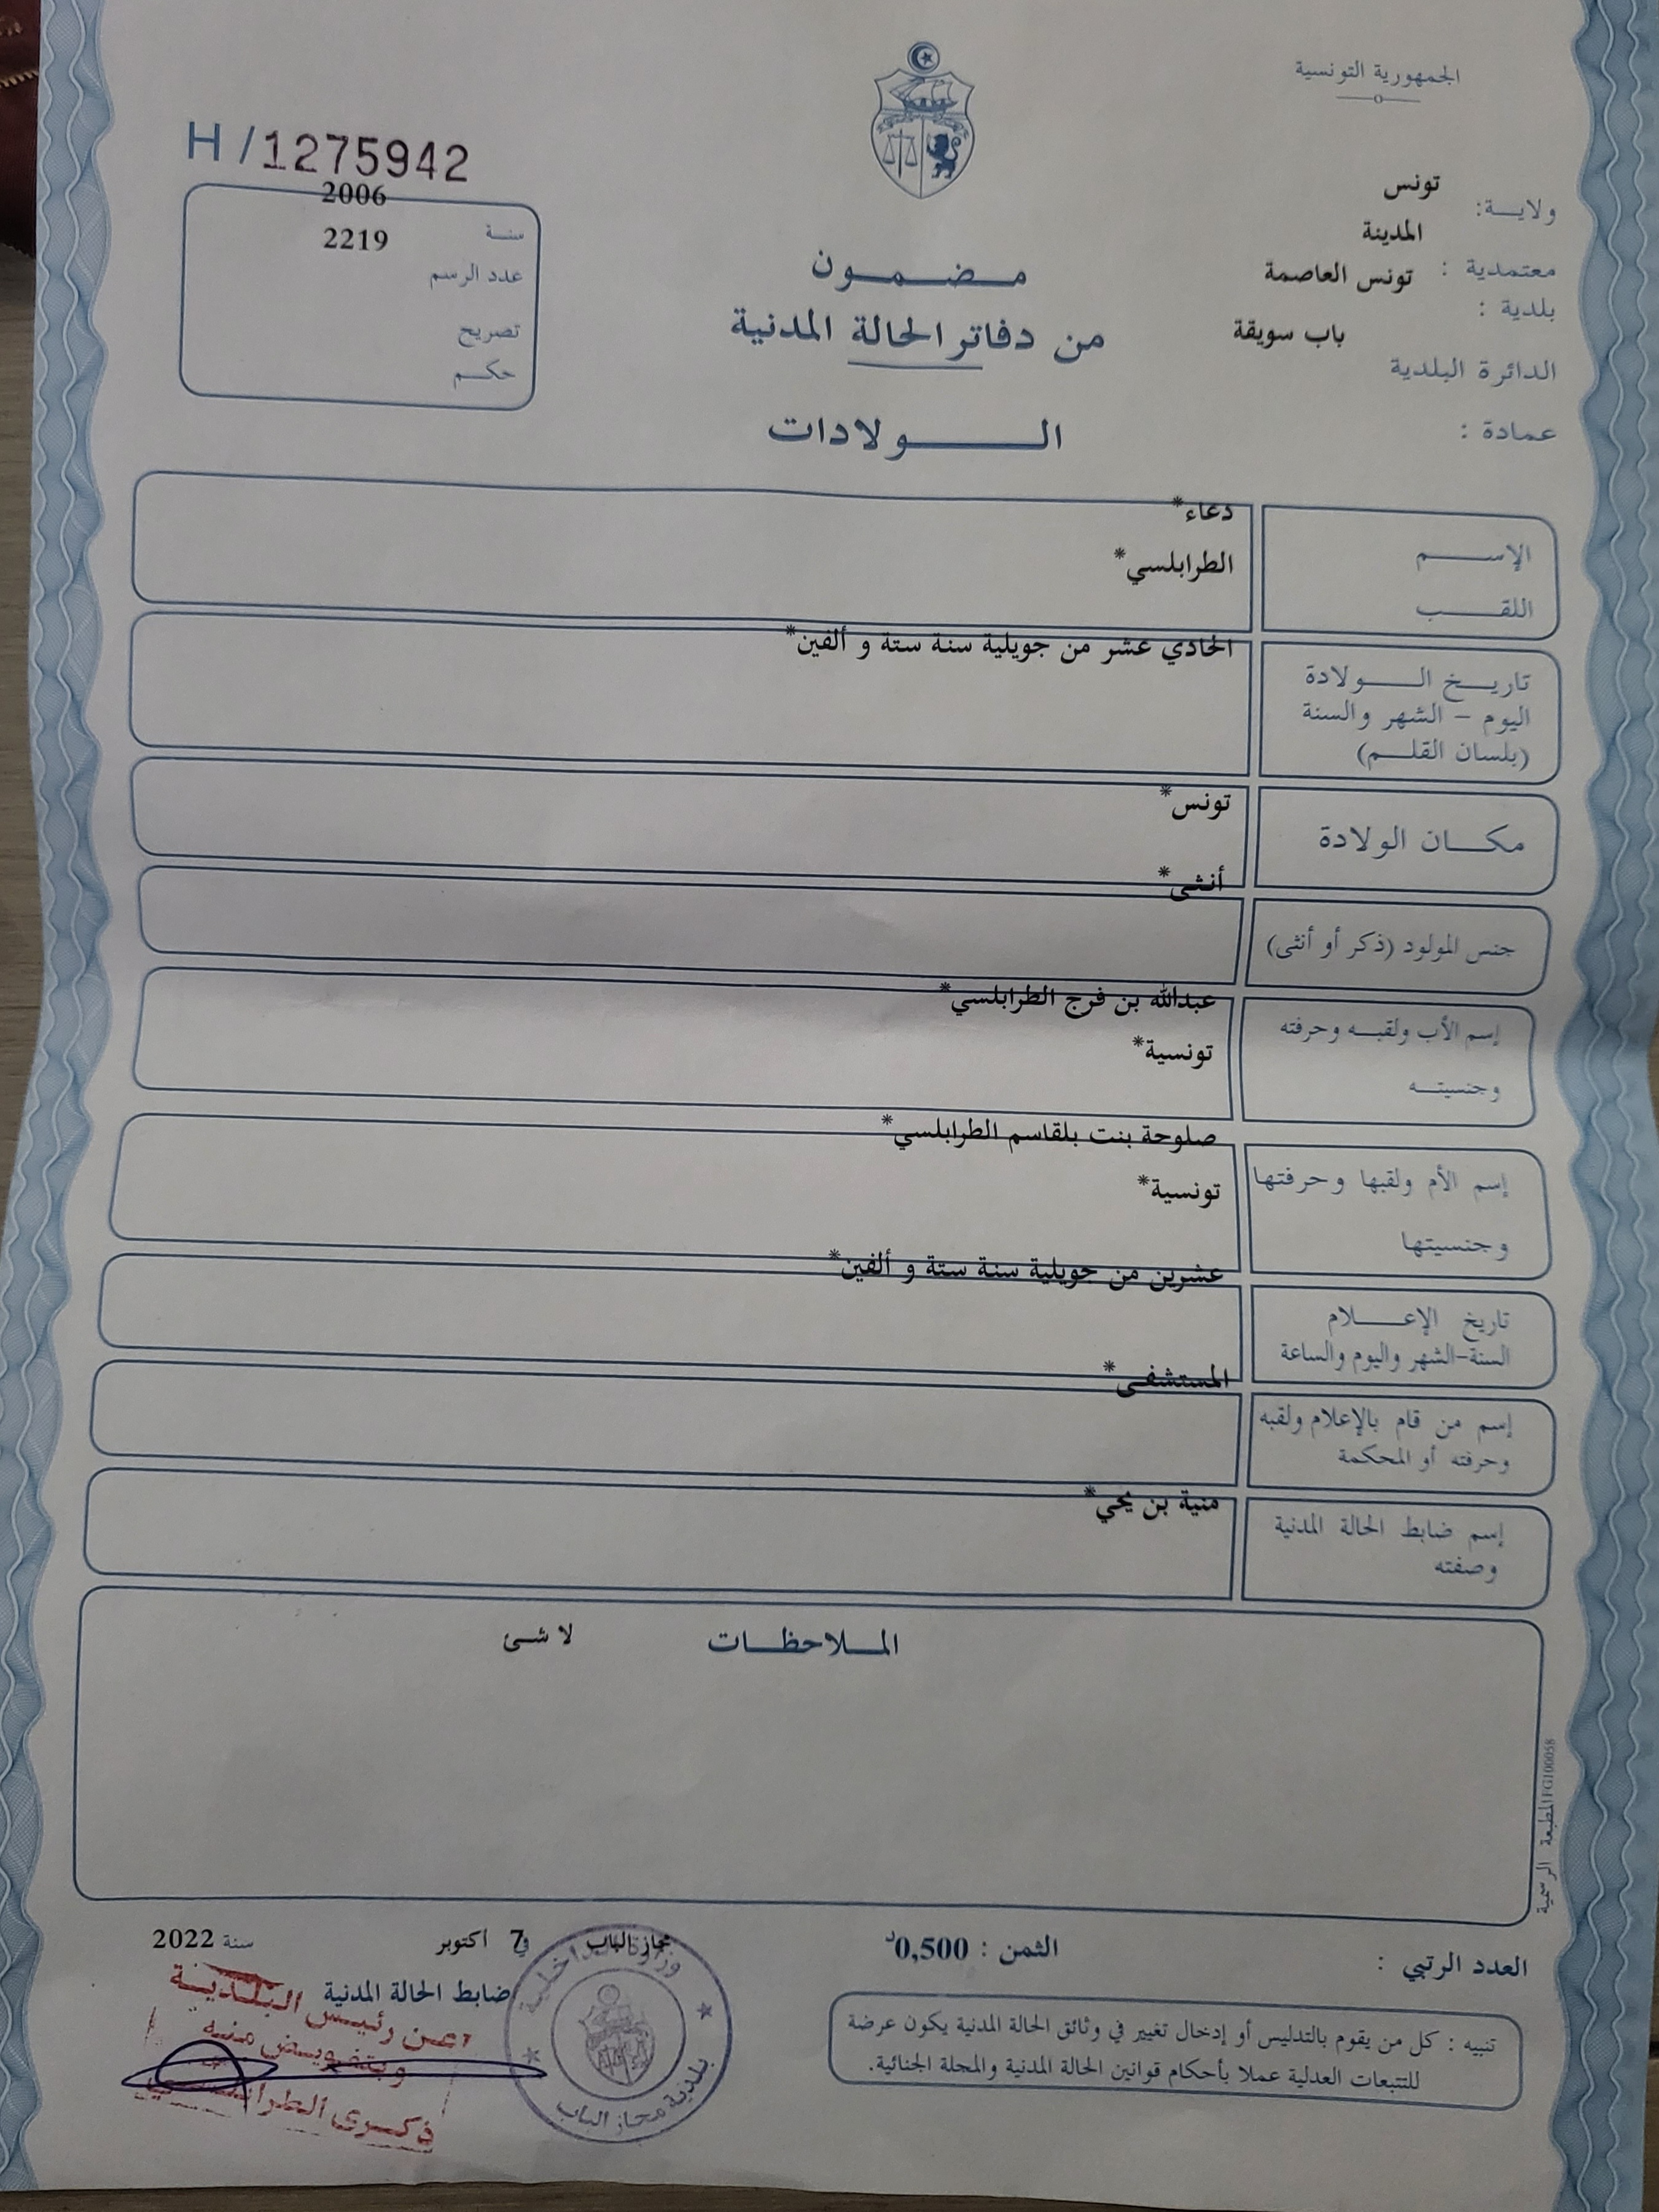 الجمهورية التونسية
H/1275942
ولايــة: تونس
معتمدية : المدينة
بلدية : تونس العاصمة
الدائرة البلدية باب سويقة
عمادة :
سنة 2006
عدد الرسم 2219
تصريح
حكم
مضمون
من دفاتر الحالة المدنية
الولادات
الإسم دعاء*
اللقب الطرابلسي*
تاريخ الولادة
اليوم - الشهر والسنة
(بلسان القلم)
الحادي عشر من جويلية سنة ستة و ألفين*
مكان الولادة
تونس*
جنس المولود (ذكر أو أنثى)
أنثى*
إسم الأب ولقبه وحرفته
عبدالله بن فرج الطرابلسي*
وجنسيته
تونسية*
إسم الأم ولقبها وحرفتها
صلوحة بنت بلقاسم الطرابلسي*
وجنسيتها
تونسية*
تاريخ الإعلام
السنة-الشهر واليوم والساعة
عشرين من جويلية سنة ستة و ألفين*
إسم من قام بالإعلام ولقبه
وحرفته أو المحكمة
المستشفى*
إسم ضابط الحالة المدنية
وصفته
منية بن يحي*
الملاحظات لا شئ
المطبعة الرسمية FG100058
العدد الرتبي :
الثمن : 0,500د
مجاز الباب في 7 اكتوبر سنة 2022
ضابط الحالة المدنية
تنبيه : كل من يقوم بالتدليس أو إدخال تغيير في وثائق الحالة المدنية يكون عرضة
للتتبعات العدلية عملا بأحكام قوانين الحالة المدنية والمجلة الجنائية.
وزارة الداخلية
بلدية مجاز الباب
عن رئيس البلدية
وبتفويض منه
ذكرى الطرابلسي